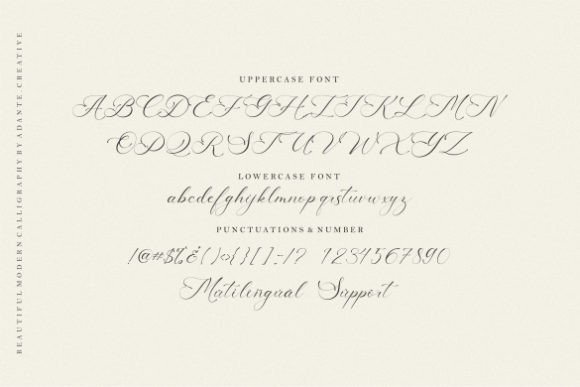 BEAUTIFUL MODERN CALLIGRAPHY BY ADANTE-CREATIVE
UPPERCASE FONT
ABCDEFGHIJKLMN
OPQRSTUVWXYZ
LOWERCASE FONT
abcdefghijklmnopqrstuvwxyz
PUNCTUATIONS & NUMBER
!@#$%&()<>{}[]-=? 1234567890
Matilengual Support